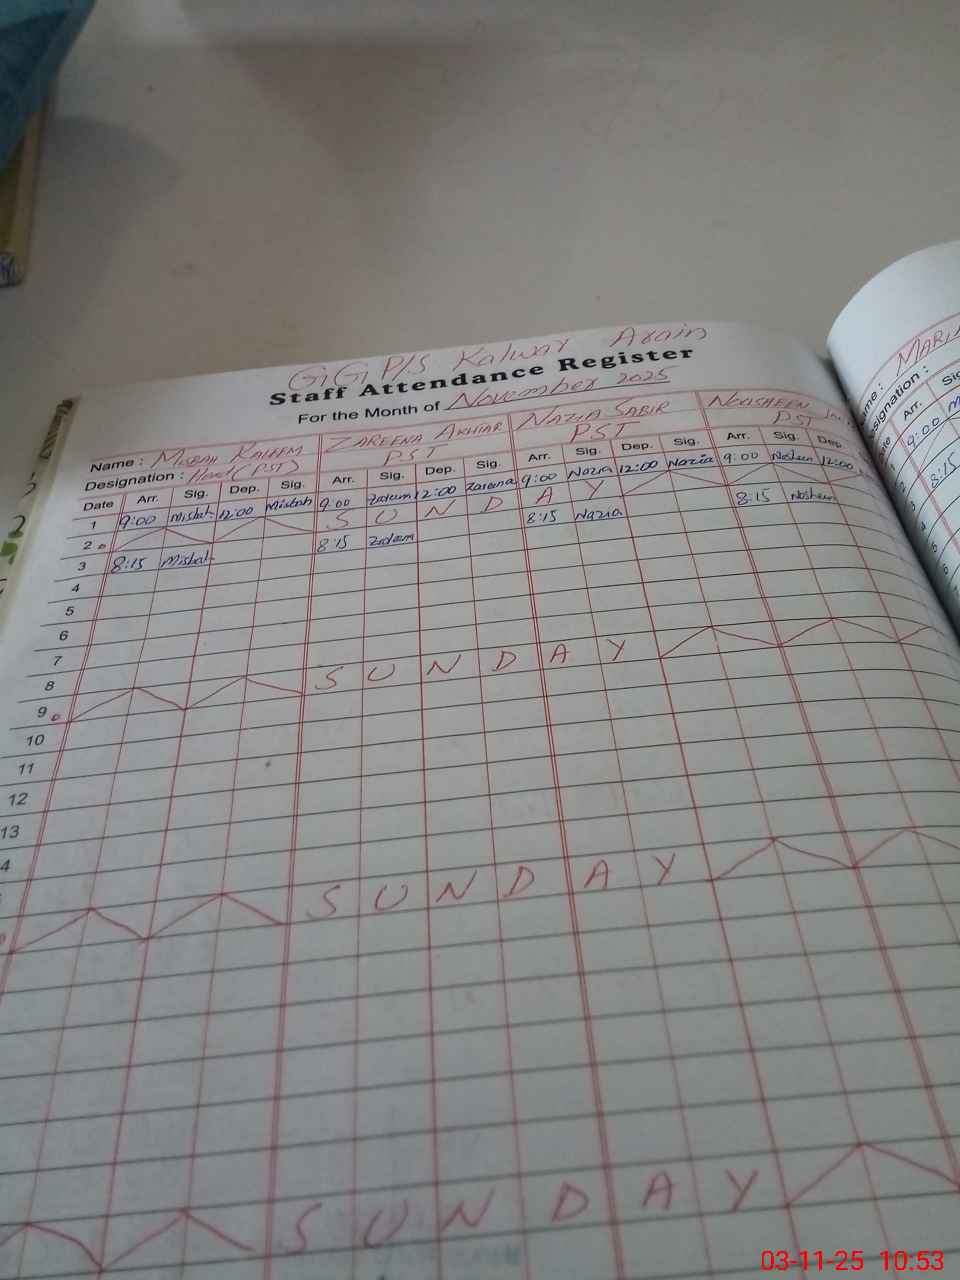 GiGi P/S Kalwar Arain
Staff Attendance Register
For the Month of November 2025
Name : MISBAH KALEEM ZAREENA AKHTAR NAZIA SABIR NOUSHEEN
Designation : Head (PST) PST PST PST
Date Arr. Sig. Dep. Sig. Arr. Sig. Dep. Sig. Arr. Sig. Dep. Sig. Arr. Sig. Dep.
1 9:00 Misbah 12:00 Misbah 9:00 Zareena 12:00 Zareena 9:00 Nazia 12:00 Nazia 9:00 Nosheen 12:00
2 SUNDAY
3 8:15 Misbah 8:15 Zareena 8:15 Nazia 8:15 Nosheen
4
5
6
7
8
9 SUNDAY
10
11
12
13
4
SUNDAY
SUNDAY
MARI
ame :
signation :
Arr. Sig
9:00
8:15
03-11-25 10:53